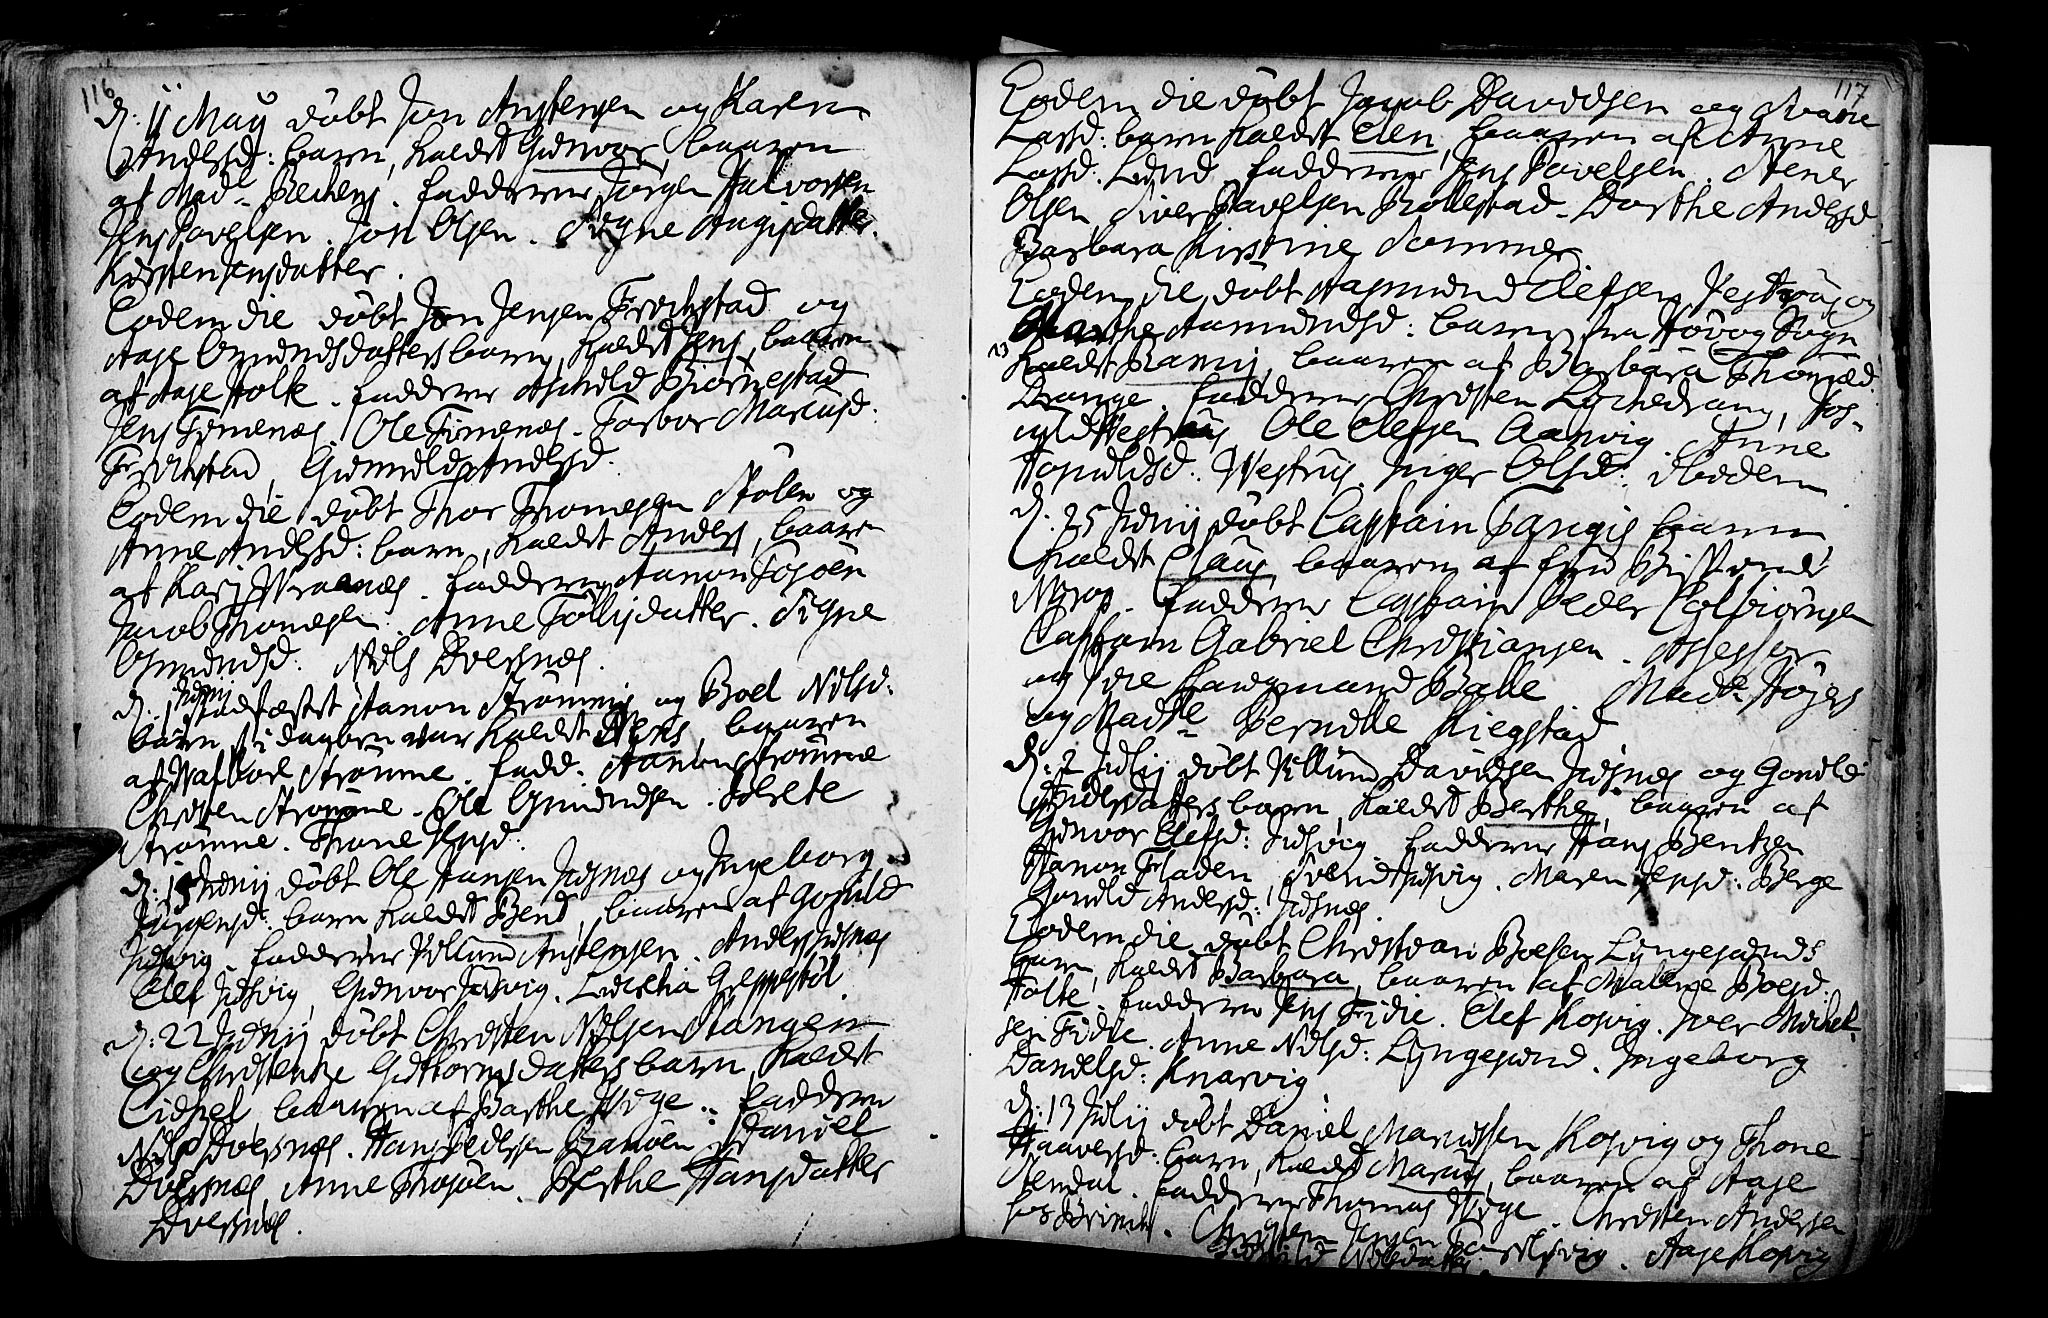 116
d: 11 Maÿ döbt Jon Anstensen og Karen
Anderssd: barn, kaldet Gunvor, baaren
af Mad. Bechens. fadderne Jørgen Halvorsen
Jens Povelsen. Jon Olsen. Signe Augisdatter.
Kirsten Jensdatter.
Eodem die döbt Jon Jensen Fruchstad og
Aase Omundsdatters barn, kaldet Jens, baaren
af Aase Holk. fadderne Aschild Biørnestad
Jens Fimenæs. Ole Fimenæs. Torbor Marcusd:
Fruchstad, Gunnild Anderssd.
Eodem die döbt Thor Thomesen Stölen og
Anne Anderssd: barn, kaldet Anders, baaren
af Kari Wraanæs. fadderne Aanon
Jacob Thomesen. Anne Tollisdatter. Signe
Omundsd. Nils Dvesnæs.
d. 1 Junij stadfæstet Aanon Strömme og Boel Nilsd:
barn, i daaben var kaldet baaren
af Walbor Strömme. fadd. Aanon Strömme
Christen Strömme. Ole Gunundsen. Strömme. Thone Jepsd.
d: 15 Junij döbt Ole Hansen Justnæs og Ingeborg
Jörgensd: barn kaldet Bend, baaren af Goruld
Justvig. fadderne Villum Anstensen. Anders Justnæs
Elef Justvig, Gunvor Justvig. Lucretia
d: 22 Junij döbt Christen Nilsen Stangen
og Christentze Guttormsdatters barn, kaldet
Cidzel baaren af Barthe Wige. fadderne
Nils Dvesnæs. Hans Pedersen Ranöen. Daniel
Dvesnæs, Anne Thosöen. Berthe Hansdatter
Dvesnæs.
117
Eodem die döbt Jacob Davidsen og
Larsd: barn kaldet Elen, baaren af Anne
Larsd. Lund. fadderne Jens Povelsen. Stener
Olsen Siver Pavelsen Rollestad. Dorthe Anderssd
Barbara Kirstine Sommer
Eodem die döbt Aasmund Elefsen Vestrus og
Marthe Aamundsd: barn fra Høvog Sogn
kaldet baaren af Barbara Thomæd:
Drange. fadderne Christen Lychedrang,
Vestrus, Ole Elefsen Aarvig. Anne
Westrus. Inger Olsd:
d. 25 Junij döbt Captain Tangis barn
kaldet Claus, baaren af fru
fadderne Captain Peder Colbiörnsen
Captain Gabriel Christiansen. Assessor
og Vice Laugmand Balle Mad. Höyers
og Madlle Pernille Kiegstad
d: 2 Julij döbt Villum Davidsen Justnæs og Gonild
Andersdatters barn, kaldet Berthe, baaren af
Gunvor Elefsd: Justvig. fadderne Hans Bentzen
Aanon Fladen, Svend Justvig. Maren Jepsd: Berge
Gonild Anderssd: Justnæs.
Eodem die döbt Christian Boesen Lyngesunds
barn, kaldet Barbara, baaren af Malene Boesd:
Holte. fadderne Jens Fidie. Elef Kosvig. Iver Michel-
sen Fidie. Anne Nilsd: Lyngesund. Ingeborg
Danielsd: Knarvig
d: 13 Julij döbt Daniel Marcussen Kosvig og Thone
Haaversd: barn, kaldet Marcus, baaren af Aase
Stendal. fadderne Thomas Wige. Christen Andersen
Christen Jensen Aase Kosvig
Nilsdatter.